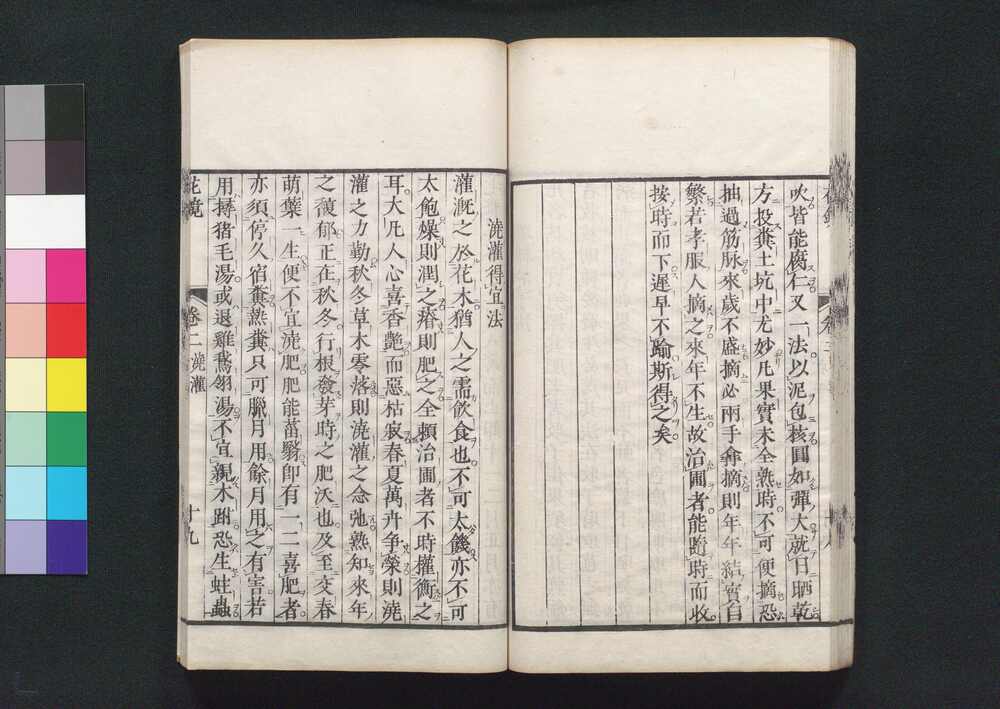 吹皆能腐仁又一法以泥包核圓如彈大就日晒乾
方投糞土坑中尤妙凡果實未全熟時不可便摘恐
抽過筋脉來歲不盛摘必兩手摘則年年結實自
繁若孝服人摘之來年不生故治圃者能隨時而收
按時而下遲早不踰斯得之矣
澆灌得宜法
灌漑之於花木猶人之需飲食也不可太饑亦不可
太飽燥則潤之瘠則肥之全賴治圃者不時權衡之
耳大凡人心喜香艶而惡枯寂春夏萬卉争榮則澆
灌之力勤秋冬草木零落則澆灌之念弛熟知來年
之馥郁正在秋冬行根發芽時之肥沃也及至交春
萌葉一生便不宜澆肥肥能菑翳即有一二喜肥者
亦須停久宿糞熟糞只可臘月用餘月用之有害若
用撏猪毛湯或退雞鵞翎湯不宜親木跗恐生蛀蟲
花鏡
卷二 澆灌
十九